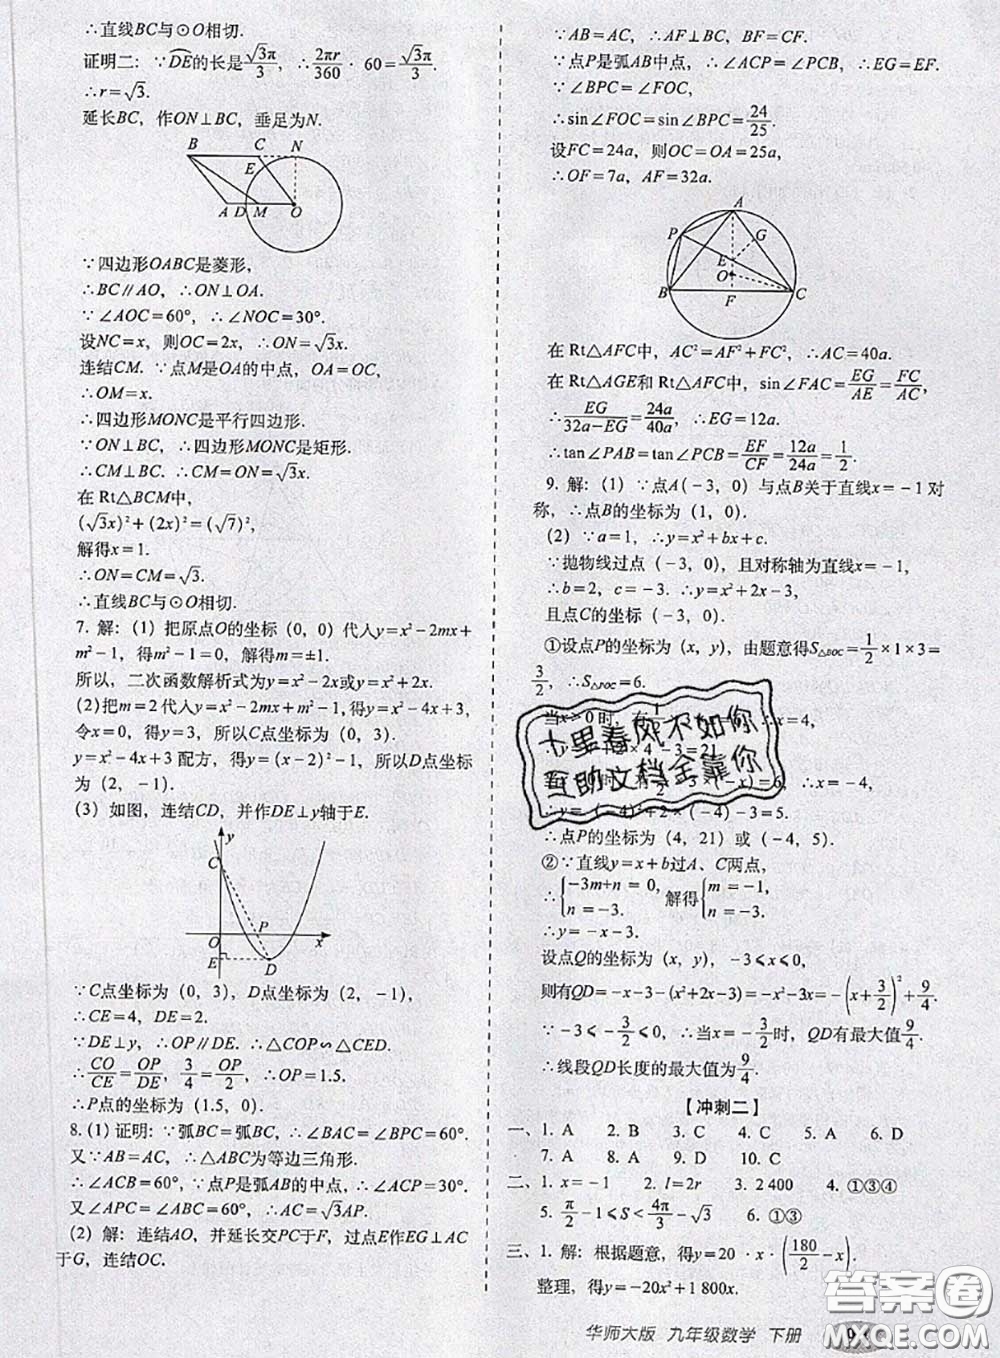 ∴直线BC与⊙O相切.
证明二：∵DE的长是√3π/3，∴2πr/360 · 60=√3π/3.
∴r=√3.
延长BC，作ON⊥BC，垂足为N.
B C N
E
A D M O
∵四边形OABC是菱形，
∴BC∥AO，∴ON⊥OA.
∵∠AOC=60°，∴∠NOC=30°.
设NC=x，则OC=2x，∴ON=√3x.
连结CM. ∵点M是OA的中点，OA=OC，
∴OM=x.
∴四边形MONC是平行四边形.
∵ON⊥BC，∴四边形MONC是矩形.
∴CM⊥BC. ∴CM=ON=√3x.
在Rt△BCM中，
(√3x)²+(2x)²=(√7)²，
解得x=1.
∴ON=CM=√3.
∴直线BC与⊙O相切.
7. 解：(1) 把原点O的坐标 (0，0) 代入y=x²-2mx+
m²-1，得m²-1=0，解得m=±1.
所以，二次函数解析式为y=x²-2x或y=x²+2x.
(2)把m=2代入y=x²-2mx+m²-1，得y=x²-4x+3，
令x=0，得y=3，所以C点坐标为 (0，3).
y=x²-4x+3 配方，得y=(x-2)²-1，所以D点坐标
为 (2，-1).
(3) 如图，连结CD，并作DE⊥y轴于E.
y
C
O P x
E D
∵C点坐标为 (0，3)，D点坐标为 (2，-1)，
∴CE=4，DE=2.
∵DE⊥y，∴OP∥DE. ∴△COP∽△CED.
∴CO/CE=OP/DE，3/4=OP/2，∴OP=1.5.
∴P点的坐标为 (1.5，0).
8. (1) 证明：∵弧BC=弧BC，∴∠BAC=∠BPC=60°.
又∵AB=AC，∴△ABC为等边三角形.
∴∠ACB=60°，∵点P是弧AB的中点，∴∠ACP=30°.
又∠APC=∠ABC=60°，∴AC=√3AP.
(2) 解：连结AO，并延长交PC于E，交BC于F，过点E作EG⊥AC
于G，连结OC.
∵AB=AC，∴AF⊥BC，BF=CF.
∵点P是弧AB中点，∴∠ACP=∠PCB，∴EG=EF.
∵∠BPC=∠FOC，
∴sin∠FOC=sin∠BPC=24/25.
设FC=24a，则OC=OA=25a，
∴OF=7a，AF=32a.
A
P G
E
O
B F C
在 Rt△AFC中，AC²=AF²+FC²，∴AC=40a.
在 Rt△AGE和 Rt△AFC中，sin∠FAC=EG/AE=FC/AC，
∴EG/(32a-EG)=24a/40a，∴EG=12a.
∴tan∠PAB=tan∠PCB=EF/CF=12a/24a=1/2.
9. 解：(1) ∵点A(-3，0) 与点B关于直线x=-1对
称，∴点B的坐标为 (1，0).
(2) ∵a=1，∴y=x²+bx+c.
∵抛物线过点 (-3，0)，且对称轴为直线x=-1，
∴b=2，c=-3. ∴y=x²+2x-3，
且点C的坐标 (0，-3).
①设点P的坐标为 (x，y)，由题意得S△BOC=1/2×1×3=
3/2，∴S△POC=6.
当x>0时，有 x=4，
×4-3=21
=6，∴x=-4，
∴y=(-4)²+2×(-4)-3=5.
∴点P的坐标为 (4，21) 或 (-4，5).
②∵直线y=x+b过A、C两点，
∴{-3m+n=0，n=-3. 解得{m=-1，n=-3.
∴y=-x-3.
设点Q的坐标为 (x，y)，-3≤x≤0，
则有QD=-x-3-(x²+2x-3)=-x²-3x=-(x+3/2)²+9/4.
∵-3≤-3/2≤0，∴当x=-3/2时，QD有最大值9/4.
∴线段QD长度的最大值为9/4.
【冲刺二】
一、1. A 2. B 3. C 4. C 5. A 6. D
7. A 8. A 9. D 10. C
二、1. x=-1 2. l=2r 3. 2 400 4. ①③④
5. π/2-1≤S<4π/3-√3 6. ①③
三、1. 解：根据题意，得y=20 · x · (180/2-x)，
整理，得y=-20x²+1 800x.
华师大版 九年级数学 下册
十里春风不如你
互助文档全靠你
答案圈
MXQE.COM